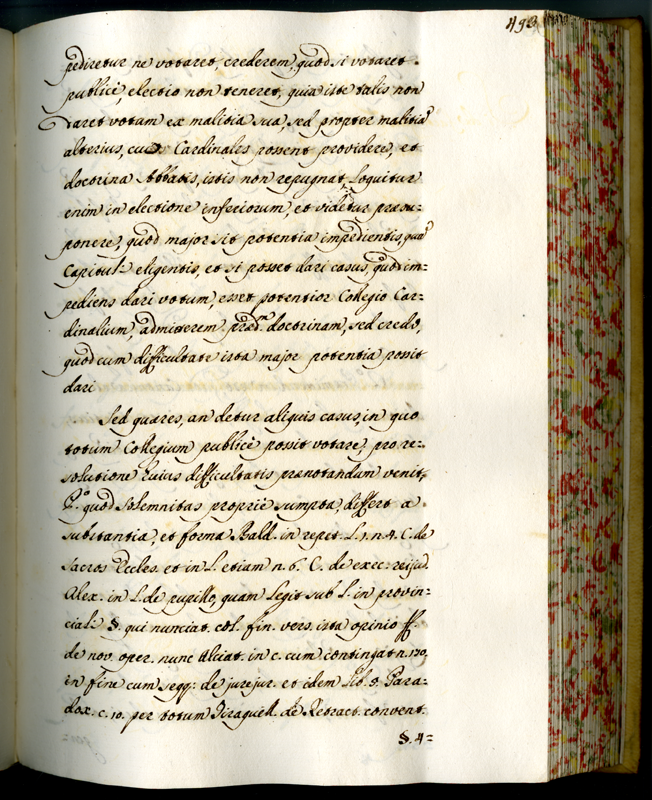 493
pediretur ne votaret, crederem, quod si votaret
publicè, electio non teneret, quia iste talis non
daret votum ex malitia sua, sed propter malitiã
alterius, cui Cardinales possent providere, et
doctrina Abbatis, istis non repugnat, loquitur
enim in electione inferiorum, et videtur præsu-
ponere, quod major sit potentia impedientis, quã
Capituli eligentis, et si posset dari casus, quod im=
pediens dari votum, esset potentior Collegio Car=
dinalium, admitterem præd.m doctrinam, sed credo,
quod cum difficultate ista major potentia possit
dari
Sed quæres, an detur aliquis casus, in quo
totum Collegium publicè possit votare, pro re=
solutione huius difficultatis prænotandum venit,
P.o quod solemnitas propriè sumpta, differt a
substantia, et forma Bald. in repet. L. 1. n. 4. C. de
sacros. Eccles. et in L. etiam n. 6. C. de exec. rei jud.
Alex. in L. de pupillo, quam legit sub L. in provin-
ciali §. qui nunciat. col. fin. vers. ista opinio ff.
de nov. oper. nunc Alciat. in c. cum contingat n. 170,
in fine cum seqq: de jurejur. et idem lib. 3. Para-
dox. c. 10. per totum Tiraquell. de Retract. convent.
§. 4=